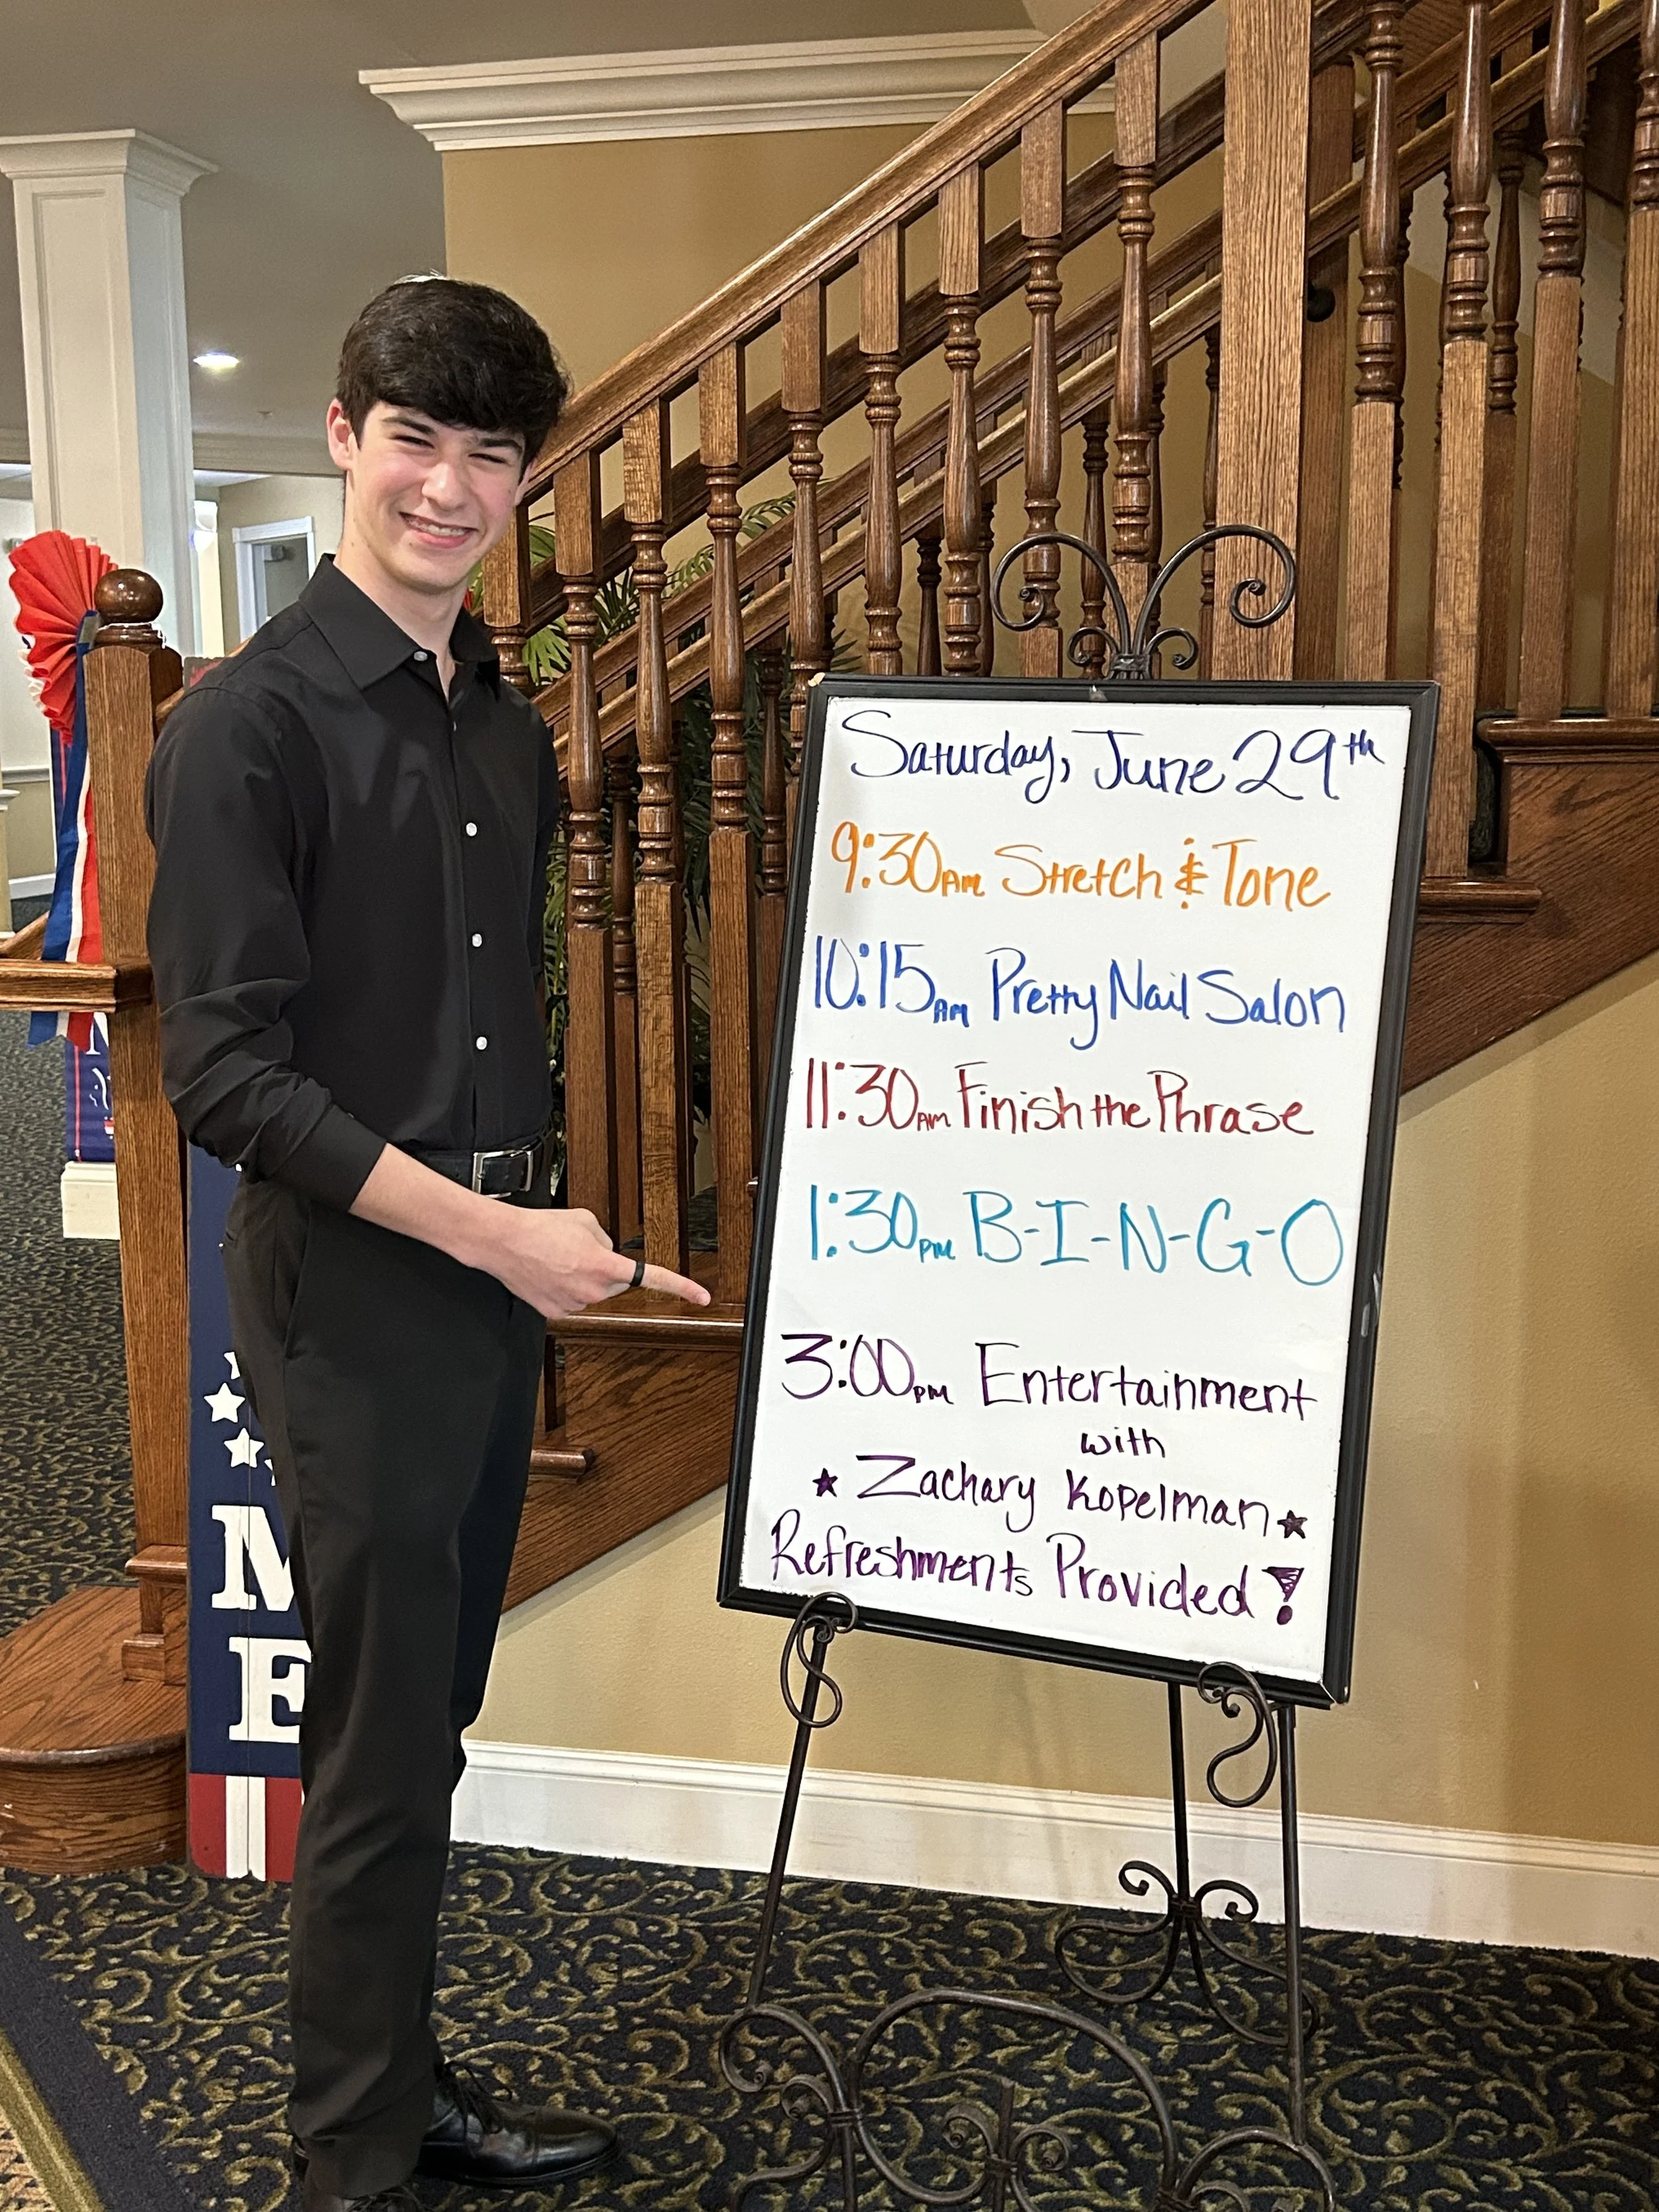 Saturday, June 29th
9:30AM Stretch & Tone
10:15AM Pretty Nail Salon
11:30AM Finish the Phrase
1:30PM B-I-N-G-O
3:00PM Entertainment
with
★ Zachary Kopelman ★
Refreshments Provided!
M
E